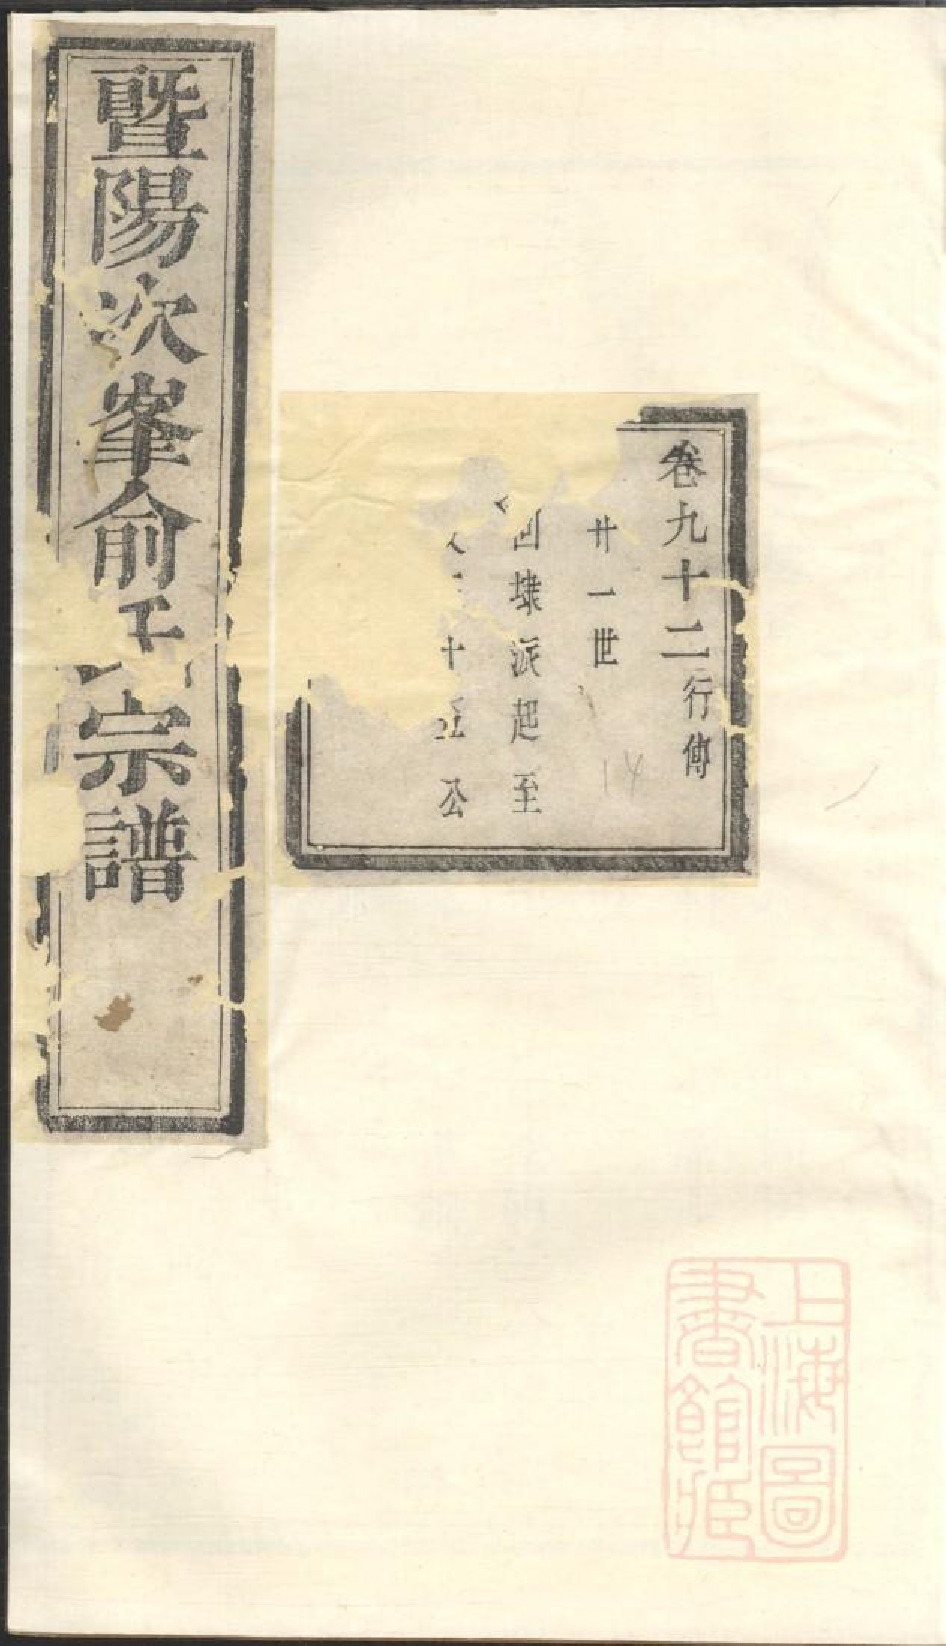 暨陽次峯俞氏宗譜
卷九十二行傳
廿一世
埭派起至
十 公
14
上海圖
書館藏